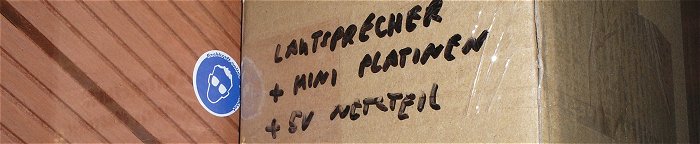 LAUTSPRECHER
+ MINI PLATINEN
+ 5V NETZTEIL